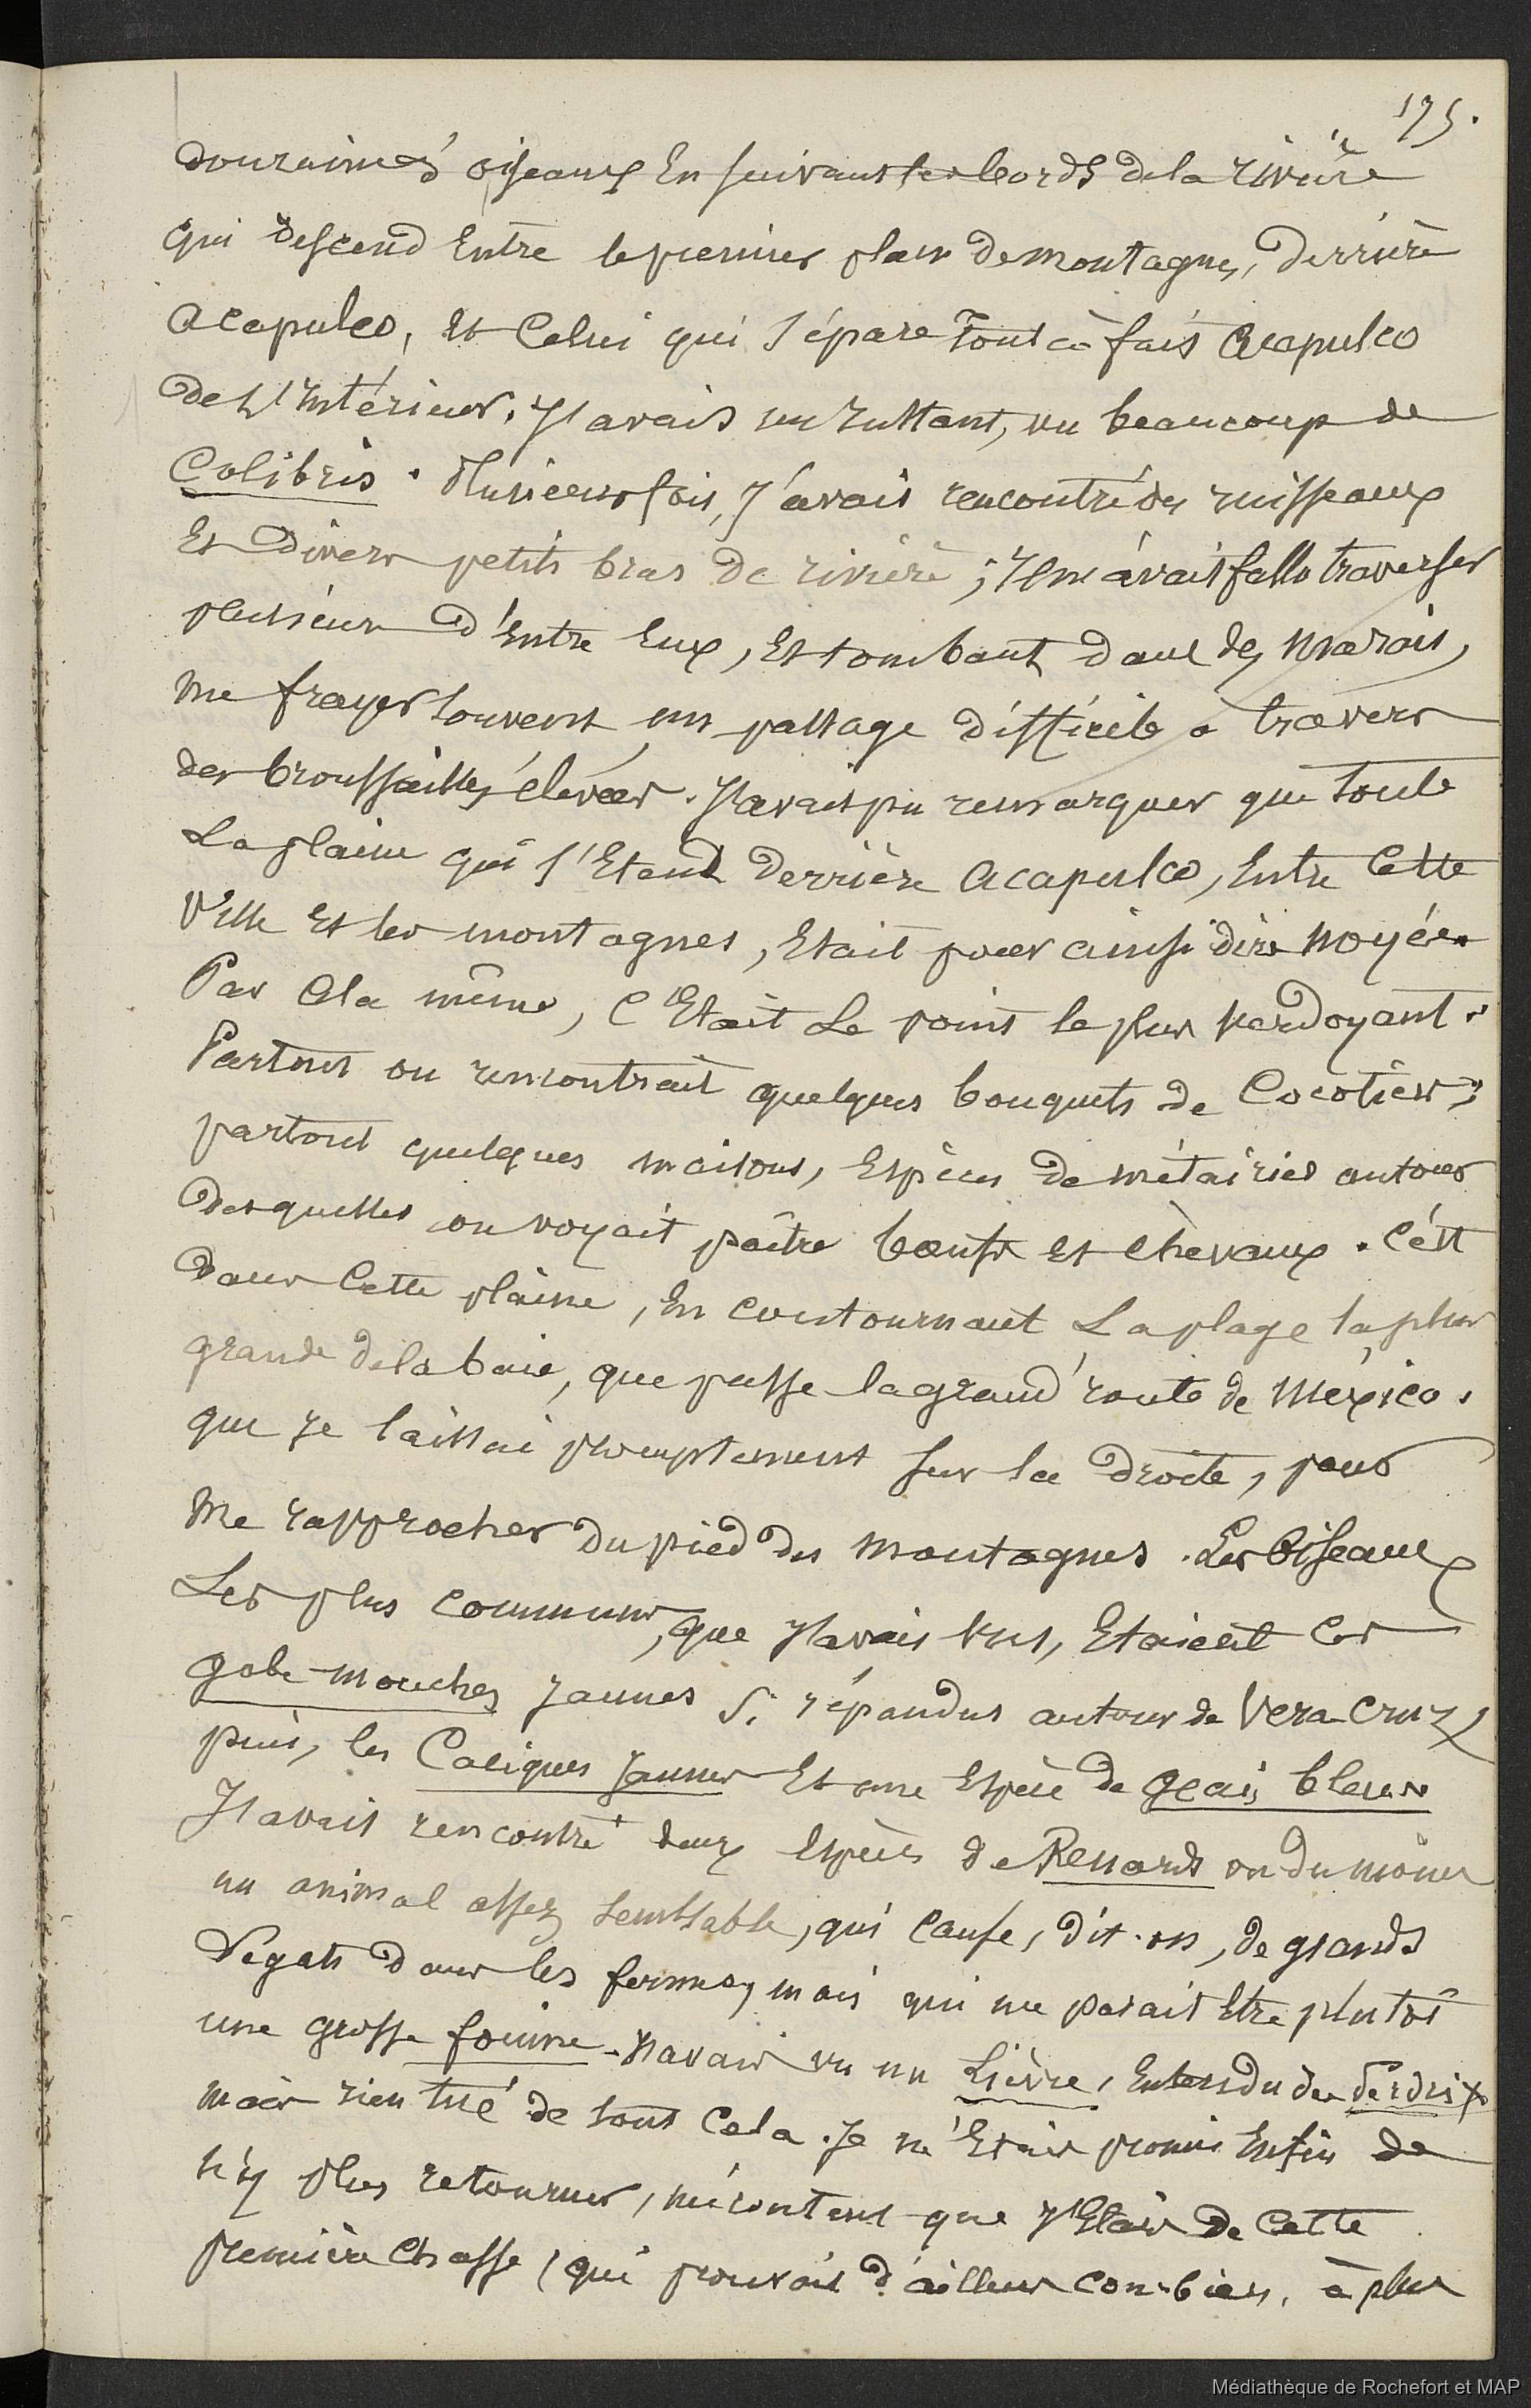 175.
douzaine d'oiseaux En suivant les bords de la rivière
qui descend Entre le premier plan de montagnes, Derrière
Acapulco, Et Celui qui sépare Tout à fait Acapulco
de L'Intérieur. J'avais vu beaucoup de
Colibris. Plusieurs fois, J'avais rencontré des ruisseaux
Et Divers petits bras de rivière ; Il m'avait fallu traverser
plusieurs D'Entre Eux, Et tombant dans des Marais,
Me frayer souvent un passage difficile à travers
des broussailles élevées. J'avais pu remarquer que toute
La plaine qui s'Etend Derrière Acapulco, Entre Cette
Ville Et les montagnes, Etait pour ainsi dire Noyée.
Par Cela même, C'Etait Le point le plus Verdoyant.
Partout on rencontrait quelques bouquets de Cocotiers ;
partout quelques maisons, Espèces de métairies autour
Desquelles on voyait paître bœufs Et Chevaux. C'est
Dans Cette plaine, En contournant La plage la plus
grande de la baie, que passe la grand'route de Mexico.
que Je laissai promptement sur la Droite, pour
Me rapprocher Du pied des Montagnes. Les Oiseaux
Les plus communs, que J'avais vus, Etaient Ces
gobe-mouches Jaunes si répandus autour de Vera-Cruz,
puis, les Caciques Jaunes Et une Espèce de geais bleus
J'avais rencontré deux Espèces de Renards ou du moins
un animal assez semblable, qui Cause, dit-on, de grands
Dégats Dans les fermes, mais qui me parait Etre plutôt
une grosse fouine. J'avais vu un Lièvre, Entendu des Perdrix
mais rien tué de tout Cela. Je m'Etais promis Enfin de
N'y plus retourner, mécontent que J'Etais de Cette
première Chasse (qui prouvait d'ailleurs combien, à plus
Médiathèque de Rochefort et MAP